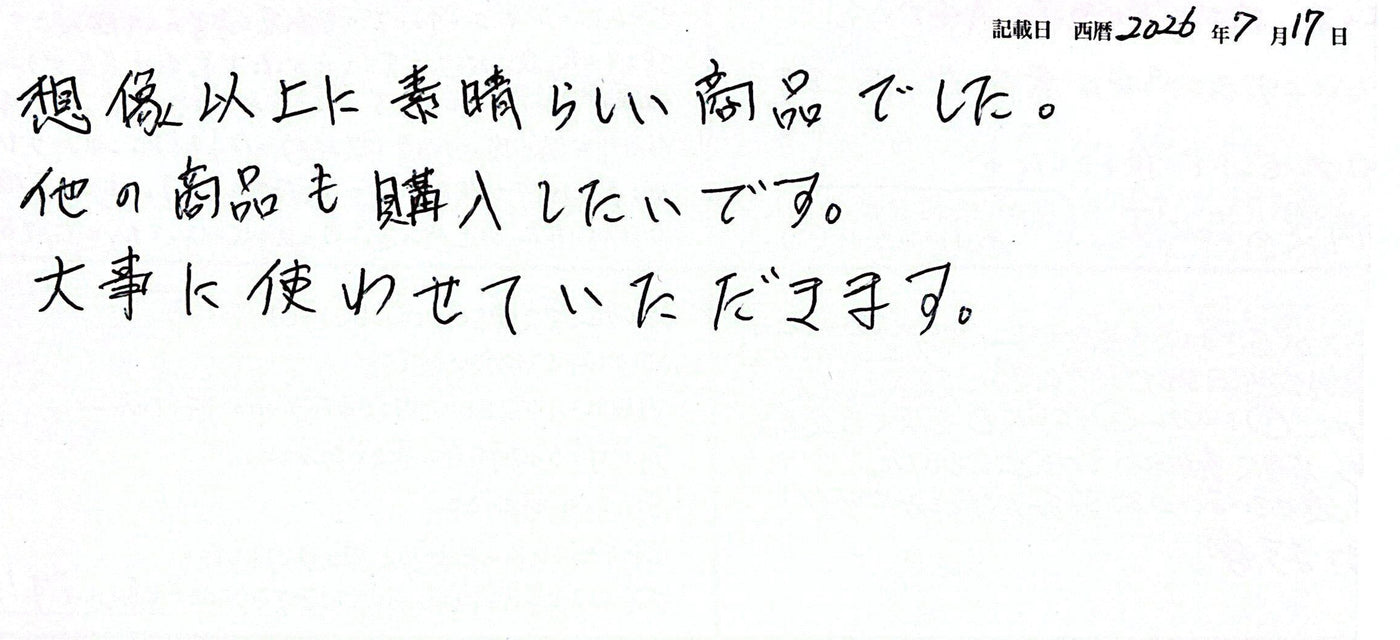 記載日 西暦 2026 年 7 月 17 日
想像以上に素晴らしい商品でした。
他の商品も購入したいです。
大事に使わせていただきます。